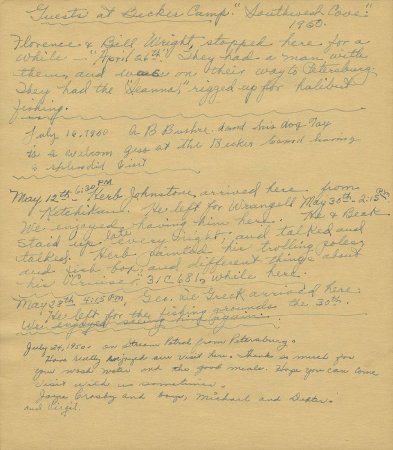 "Guests at Becker Camp." "Southwest Cove."
1950.
Florence & Bill Wright, stopped here for a
while - "April 26th." They had a man with
them, and was on their way to Petersburg.
They had the "Leanna," rigged up for halibut
fishing.
July 16, 1950 A B Bushre and his dog Tay
is a welcom gess at the Becker Camd having
a splendid visit
May 12th - 6:30 PM Herb Johnstone, arrived here from
Ketchikan. He left for Wrangell May 30th - 2:15 Pm
We enjoyed having him here. He & Beak
staid up late every night, and talked and
talked. Herb painted his trolling poles
and fish box, and different things about
his Cruiser, 31C681, while here.
May 28th 4:15 Pm, Geo. we Greek arrived here.
He left for the fishing grounds the 30th.
We enjoyed seeing him again.
July 24, 1950 - on Stream Patrol from Petersburg.
Have really enjoyed our visit here. Thanks so much for
your wash water and the good meals. Hope you can come
visit with us sometime.
Jayne Crosby and boys, Michael and Dexter
and Virgil.